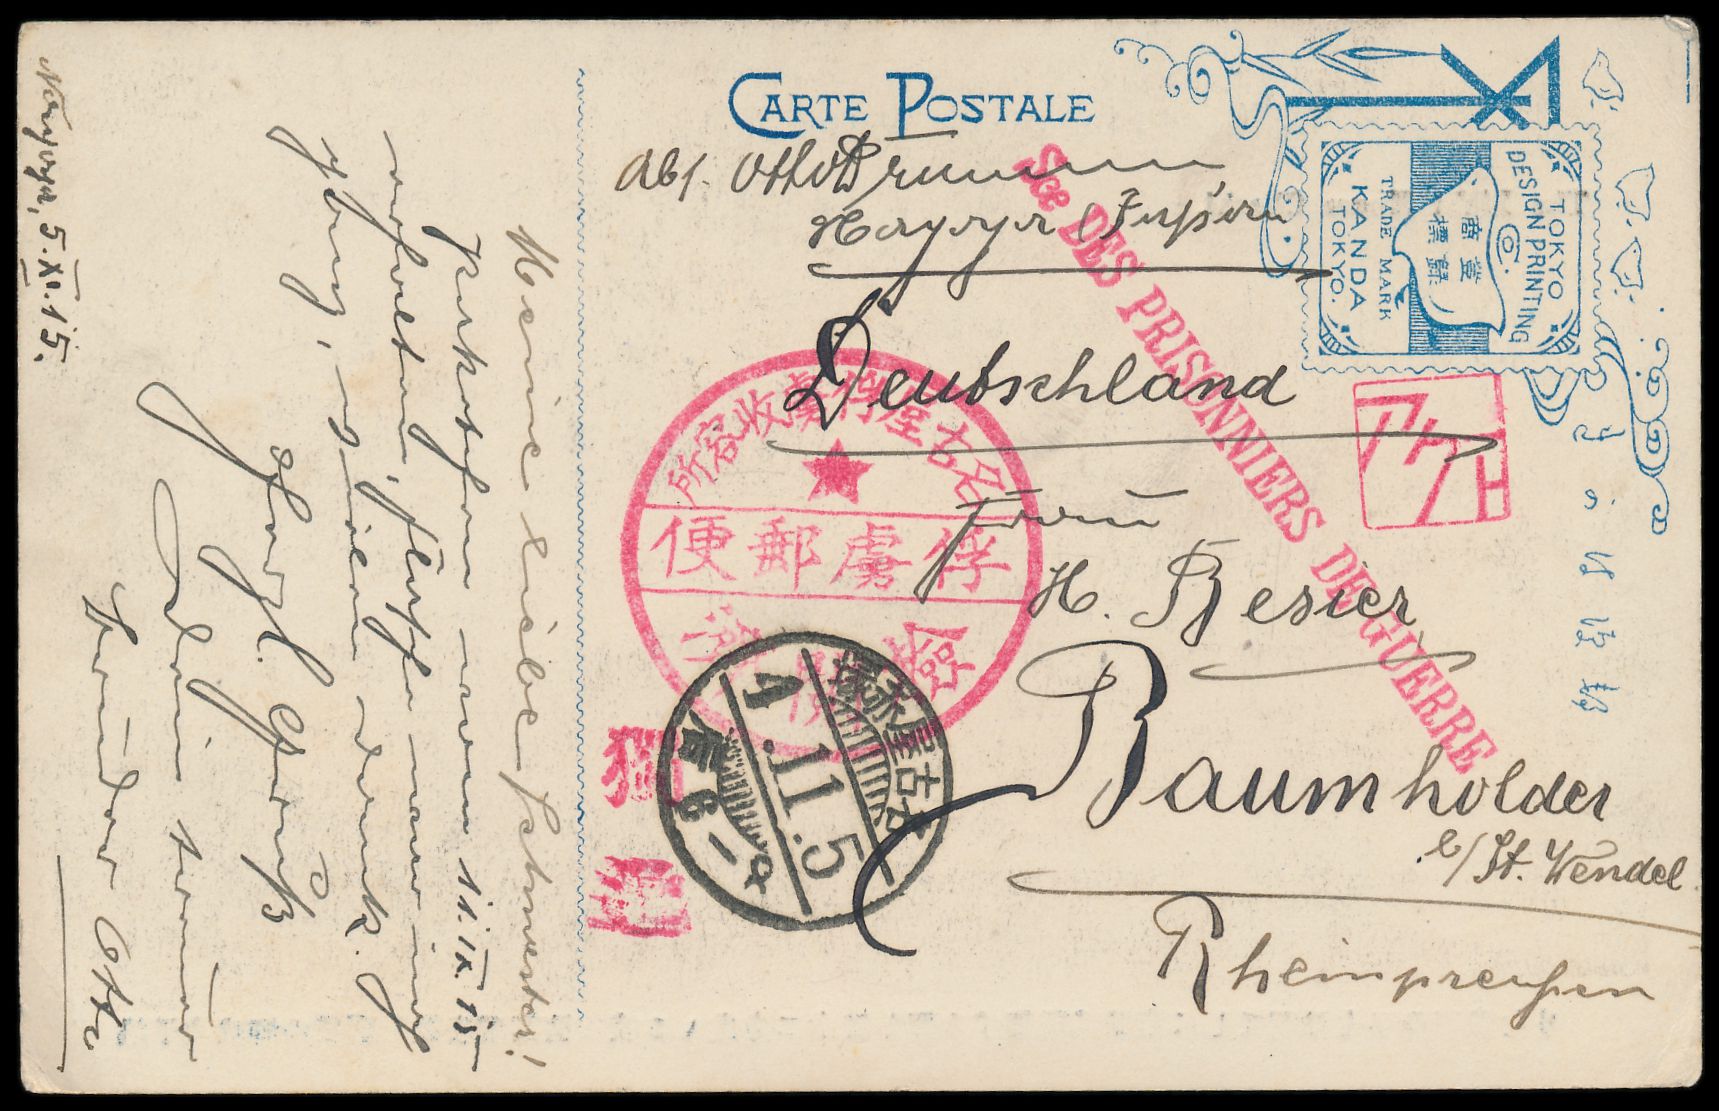 CARTE POSTALE
Abs. Otto
Nagoya (Japan)
TOKYO
DESIGN PRINTING
Co.
商標
登録
TRADE MARK
KANDA
TOKYO.
Sce DES PRISONNIERS DE GUERRE
名古屋俘虜収容所
俘虜郵便
検閲済
名古屋
4.11.5
前 6-9
Deutschland
Frau
H. Besier
Baumholder
b/St. Wendel
Rheinpreußen
Nagoya, 5.XI.15.
Meine liebe Schwester!
Postkarten vom 11.IX.15
erhalten,
vielen Dank.
Herzl. Gruß
Dein treuer
Bruder Otto